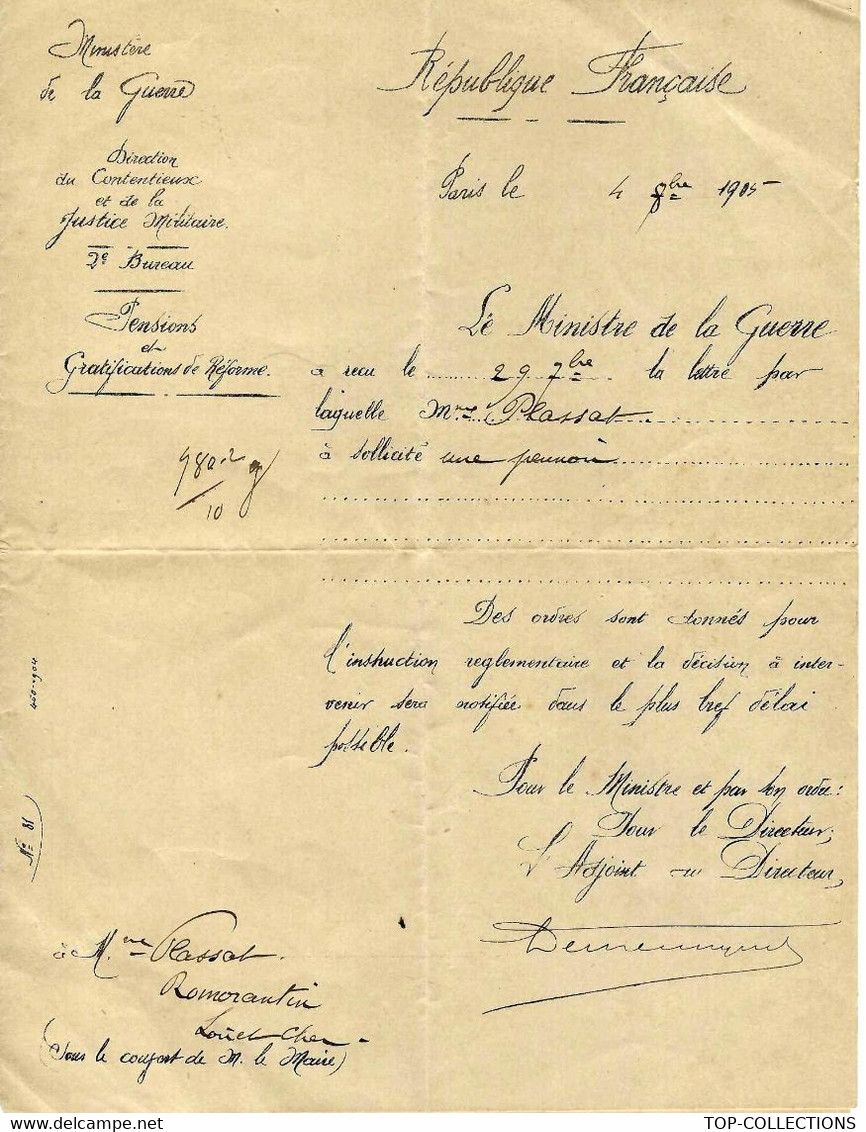 Ministère
de la Guerre
République Française
Direction
du Contentieux
et de la
Justice Militaire.
2e Bureau
Pensions
et
Gratifications de Réforme.
Paris le 4 8bre 1905
Le Ministre de la Guerre
a recu le 29 7bre la lettre par
laquelle Mme Plassat
à sollicité une pension
980-2
10
Des ordres sont donnés pour
l'instruction reglementaire et la décision à inter-
venir sera notifiée dans le plus bref délai
possible.
Pour le Ministre et par son ordre:
Pour le Directeur;
L'Adjoint au Directeur,
460-904
No 81
à Mme Plassat.
Romorantin
Loir et Cher
(Sous le couvert de M. le Maire)
TOP-COLLECTIONS